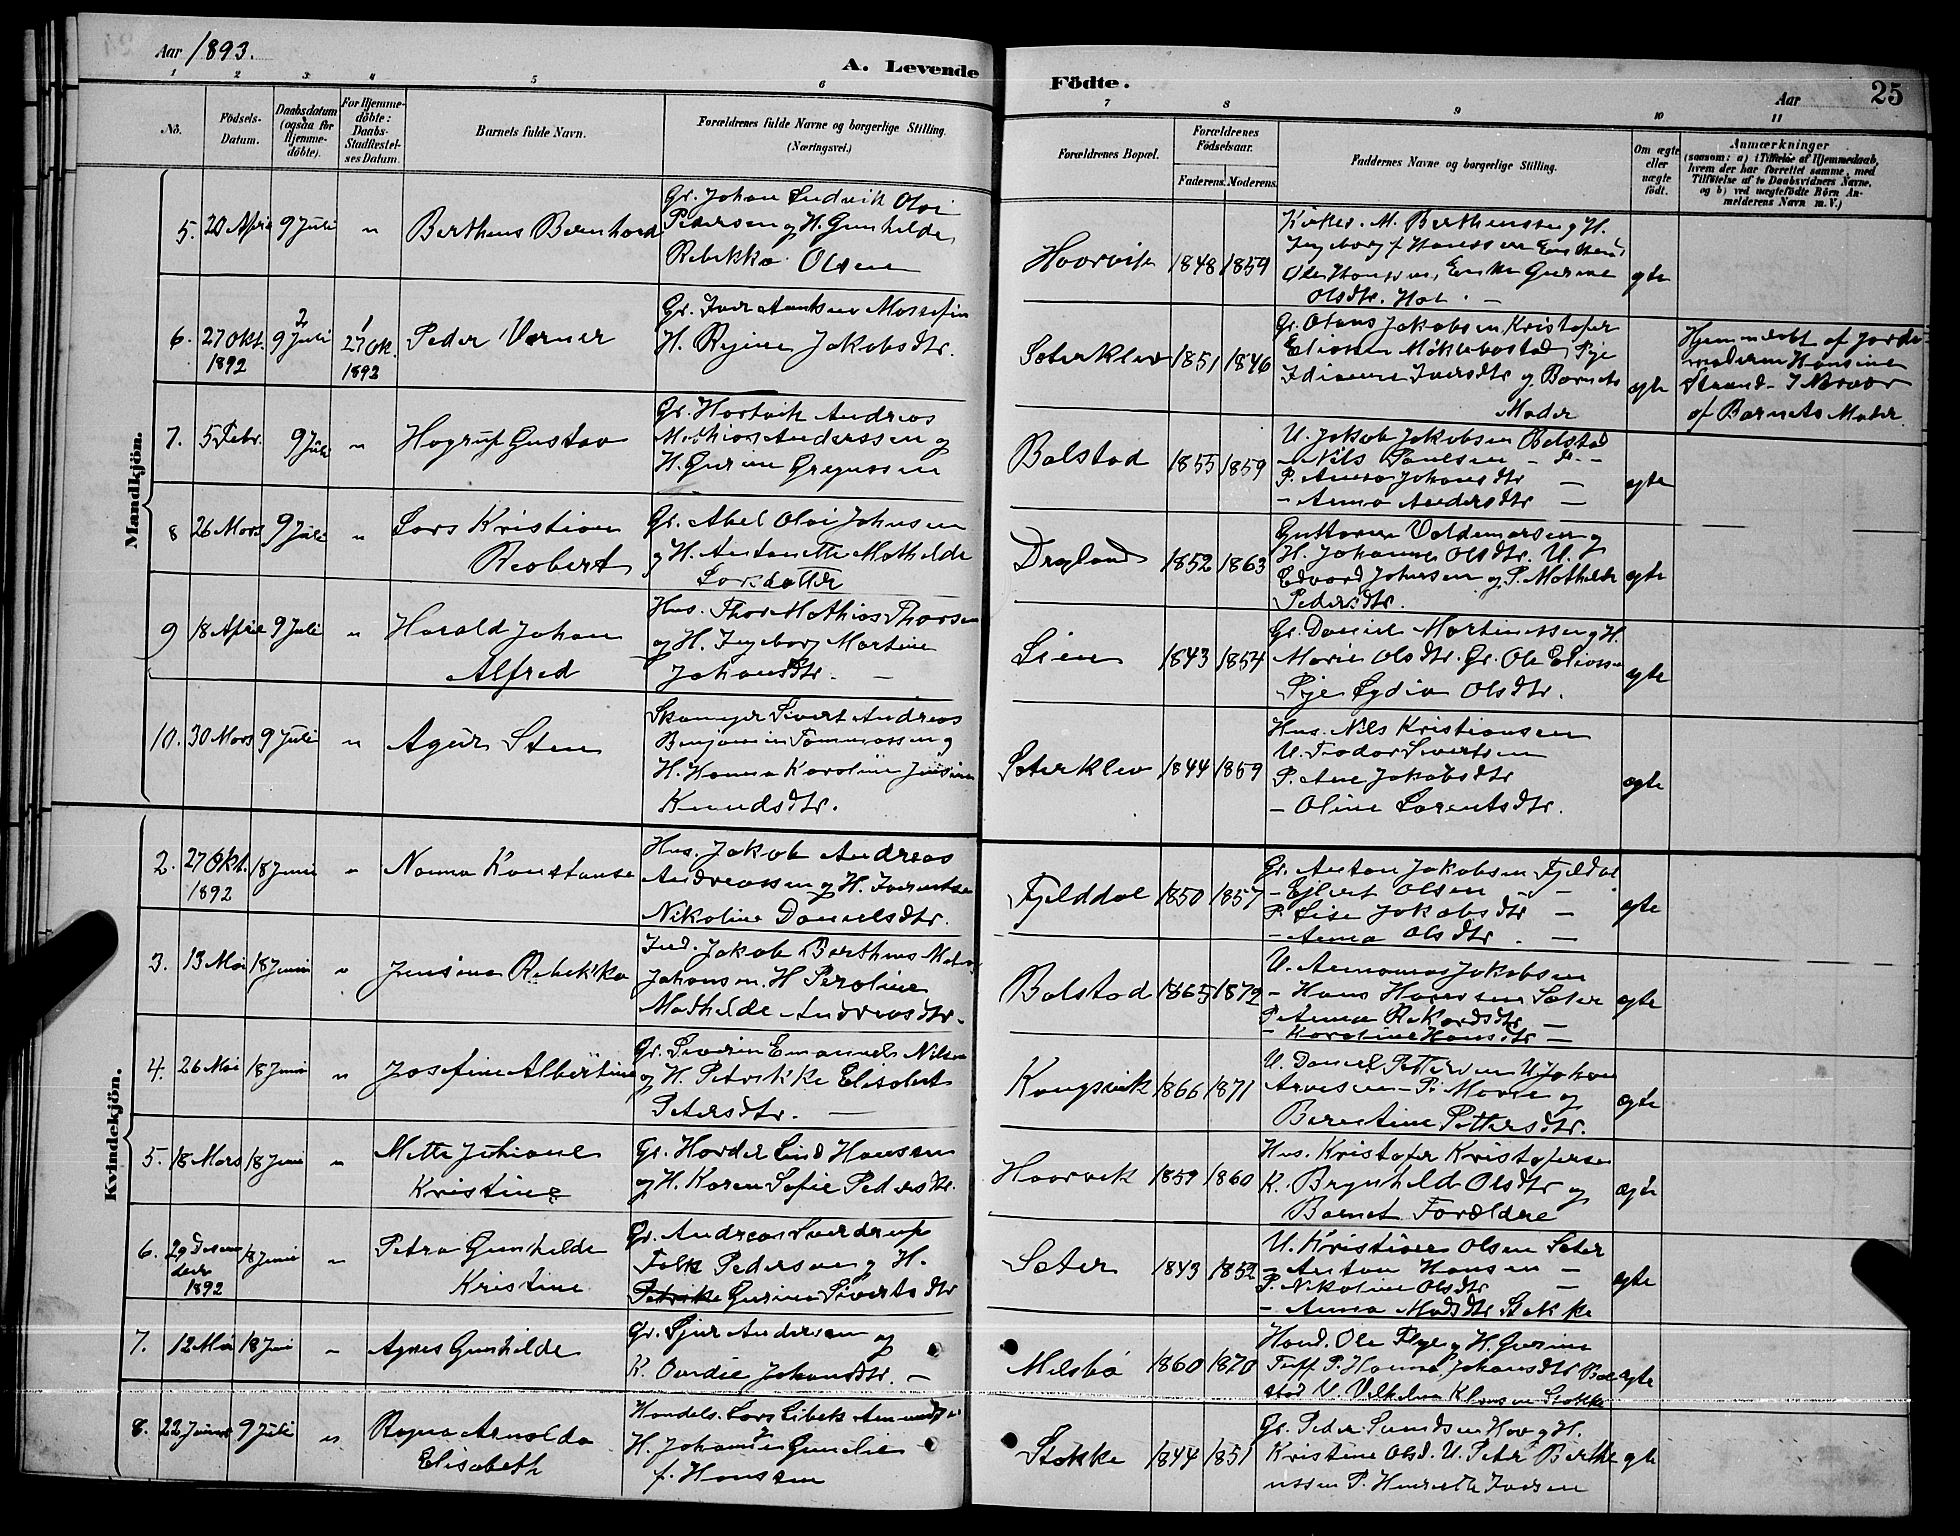 Aar 1893.
A. Levende
Födte.
Aar
25
1 2 3 4 5 6 7 8 9 10 11
No.
Födsels-Datum.
Daabsdatum (ogsaa for Hjemme-döbte).
For Hjemme-döbte: Daabs-Stadfestel-ses Datum.
Barnets fulde Navn.
Forældrenes fulde Navne og borgerlige Stilling.
(Næringsvei.)
Forældrenes Bopæl.
Forældrenes Födselsaar.
Faderens. Moderens.
Faddernes Navne og borgerlige Stilling.
Om ægte eller uægte födt.
Anmærkninger
(saasom: a) i Tilfælde af Hjemmedaab, hvem der har forrettet samme, med Tilföielse af to Daabsvidners Navne, og b) ved uægtefödte Börn An-melderens Navn m. V.)
Mandkjön.
5. 20 April 9 Juli " Bertheus Bernhard
Gr. Johan Ludvik Olai
Petersen og H. Gunhilde
Rebekka Olsen
Haarvik 1848 1859
Ole Hansen, Enke Gurine
Olsdtr. Hol. -
ægte
6. 27 Okt. 1892 9 Juli 27 Ok. 1892 Peder Verner
H. Regine Jakobsdtr.
Sæterklev 1851 1846
Gr. Olaus Jakobsen Kristofer
Eliasen Møklebostad Pige
Idianne Iversdtr og Barnets
Moder
ægte
Hjemmedøbt af Jorde
moderen Hansine
Strand - I Nærvær
af Barnets Moder
7. 5 Febr. 9 Juli " Hagrup Gustav
Gr. Hartvik Andreas
Mathias Anderssen og
H. Gurine Gregussen
Balstad 1855 1859
U. Jakob Jakobsen Balstad
- Nils Paulsen - do -
P. Anna Johansdtr -
- Anna Andersdtr -
ægte
8 26 Mars 9 Juli " Lars Kristian
Robert
Gr. Abel Olai Johnsen
og H. Antonette Mathilde
Larsdatter
Dragland 1852 1863
Guttorm Valdemarsen og
H. Johanna Olsdtr. U.
Edvard Johnsen og P. Mathilde
Pedersdtr.
ægte
9 18 April 9 Juli " Harald Johan
Alfred
Hus. Thor Mathias Thorsen
og H. Ingeborg Martine
Johansdtr. -
Lien 1843 1854
Gr. Daniel Martinussen og H.
Marie Olsdtr. Gr. Ole Eliassen
Pige Lydia Olsdtr.
ægte
10. 30 Mars 9 Juli " Agur Sten
Sivert Andreas
Benjamin Tommassen og
H. Hanna Karoline Jensine
Knudsdtr.
Sæterklev 1844 1859
Hus. Nils Kristiansen
U. Teodor Sivertsen
P. Ane Jakobsdtr
- Oline Lorentsdtr.
ægte
Kvindekjön.
2. 27 Okt. 1892 18 Juni " Nanna Konstanse
Hus. Jakob Andreas
Andreassen og H.
Nikoline Danielsdtr.
Fjelddal 1850 1857
Gr. Anton Jakobsen Fjeldal
- Ejlert Olsen -
P. Lise Jakobsdtr -
- Anna Olsdtr. -
ægte
3. 13 Mai 18 Juni " Jensina Rebekka
Ind. Jakob Berthus
Johansen. H Peroline
Mathilde Andreasdtr.
Balstad 1865 1872
U. Jakobsen
- Hans Hansen Sæter
P. Anna Rikardsdtr -
- Karoline Hansdtr -
ægte
4. 26 Mai 18 Juni " Josefine Albertine
Gr. Severin Emanuel Nilsen
og H. Petrikke Elisabet
Petersdtr. -
Kongsvik 1866 1871
U. Daniel Pettersen U Johan
Arnesen - P. Marie og
Berentine Pettersdtr.
ægte
5. 18 Mars 18 Juni " Mette Juliane
Kristine
Gr. Harder Lind Hanssen
og H. Karen Sofie Pedersdtr.
Haarvik 1859 1860
Hus. Kristofer Kristofersen
K. Brynhild Olsdtr og
Barnets Forældre
ægte
6. 29 Desem ber 1892 18 Juni " Petra Gunhilde
Kristine
Gr. Andreas Sverdrup
Falk Pedersen og H.
Petrikke Gurina Sivertsdtr
Sæter 1843 1852
U. Kristian Olsen Sæter
- Anton Hansen -
P. Nikoline Olsdtr -
- Anna Madsdtr Stokke
ægte
7. 12 Mai 18 Juni " Agnes Gunhilde
Gr. Sjur Andersen og
K. Johansdtr. -
Melsbø 1860 1870
Hand. Ole og H. Gurine
P. Hanna Johansdtr Bal
stad U. Vilhelm Klausen Stokke
ægte
8. 22 9 Juli " Ragna Arnolda
Elisabeth
Handels. Lars Libek
H. Johanna Gunelie
f. Hanssen
Stokke 1844 1851
Gr. Peder Hov og H.
Kristine Olsd. U. Peter Berthe
ussen P. Henriette Iversen
ægte